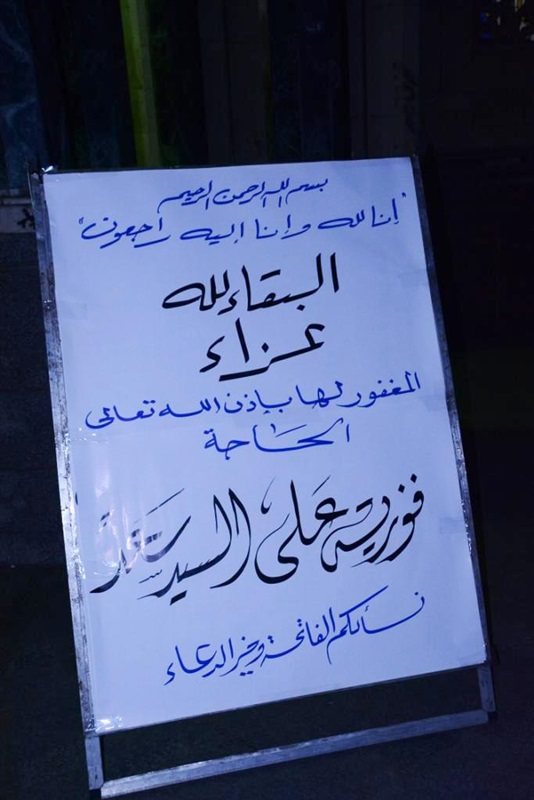 بسم الله الرحمن الرحيم
"إنا لله وإنا إليه راجعون"
البقاء لله
عزاء
المغفور لها بإذن الله تعالى
الحاجة
فوزية على السيد سعد
نسألكم الفاتحة وخير الدعاء